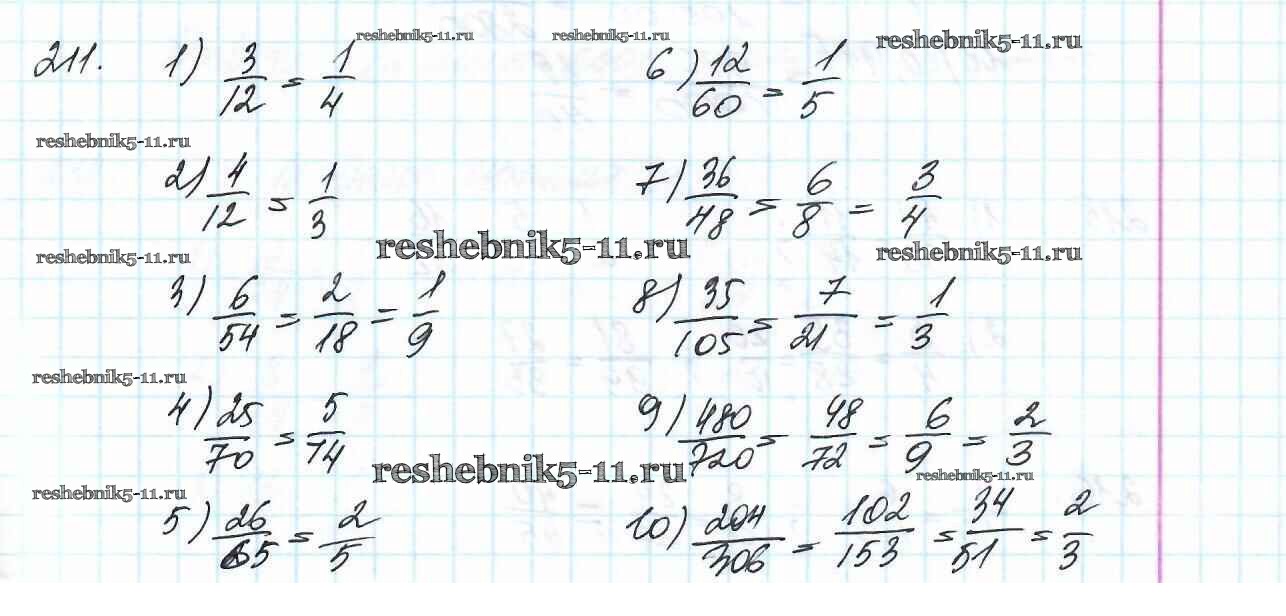 211. 1) 3/12 = 1/4 reshebnik5-11.ru reshebnik5-11.ru 6) 12/60 = 1/5 reshebnik5-11.ru
reshebnik5-11.ru
2) 4/12 = 1/3 7) 36/48 = 6/8 = 3/4
reshebnik5-11.ru reshebnik5-11.ru reshebnik5-11.ru
3) 6/54 = 2/18 = 1/9 8) 35/105 = 7/21 = 1/3
reshebnik5-11.ru
4) 25/70 = 5/14 9) 480/720 = 48/72 = 6/9 = 2/3
reshebnik5-11.ru reshebnik5-11.ru reshebnik5-11.ru
5) 26/65 = 2/5 10) 204/306 = 102/153 = 34/51 = 2/3